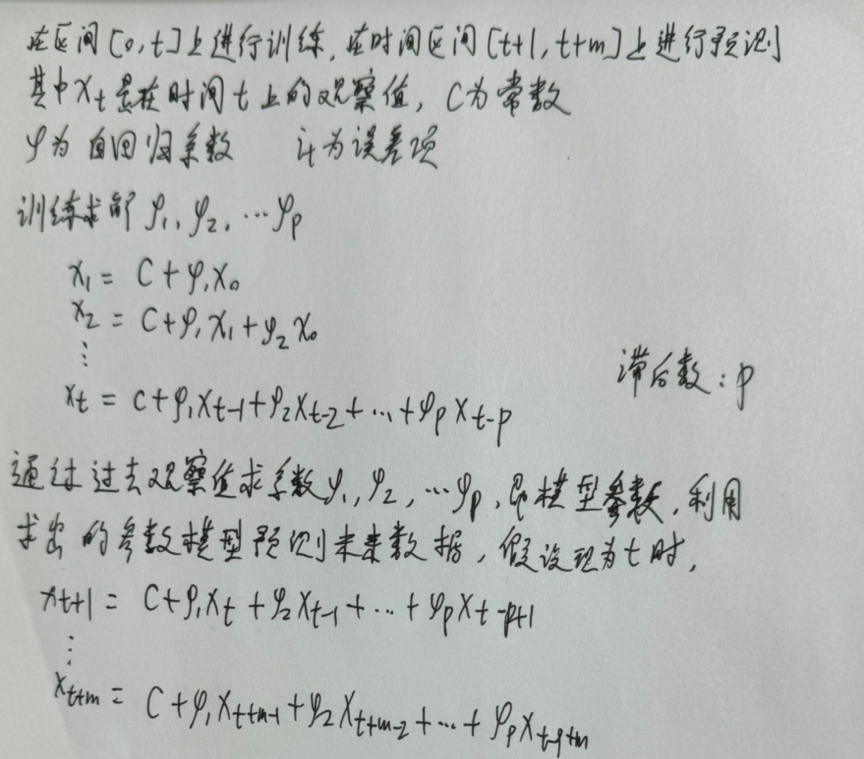 在区间[0,t]上进行训练,在时间区间[t+1,t+m]上进行预测
其中Xt是在时间t上的观察值,C为常数
φ为自回归系数 it为误差项
训练求解φ1,φ2,…φp
X1 = C+φ1X0
X2 = C+φ1X1+φ2X0
⋮
Xt = C+φ1Xt-1+φ2Xt-2+…+φpXt-p
滞后数:p
通过过去观察值求系数φ1,φ2,…φp,即模型参数,利用
求出的参数模型预测未来数据,假设现为t时,
Xt+1 = C+φ1Xt+φ2Xt-1+…+φpXt-p+1
⋮
Xt+m = C+φ1Xt+m-1+φ2Xt+m-2+…+φpXt-p+m